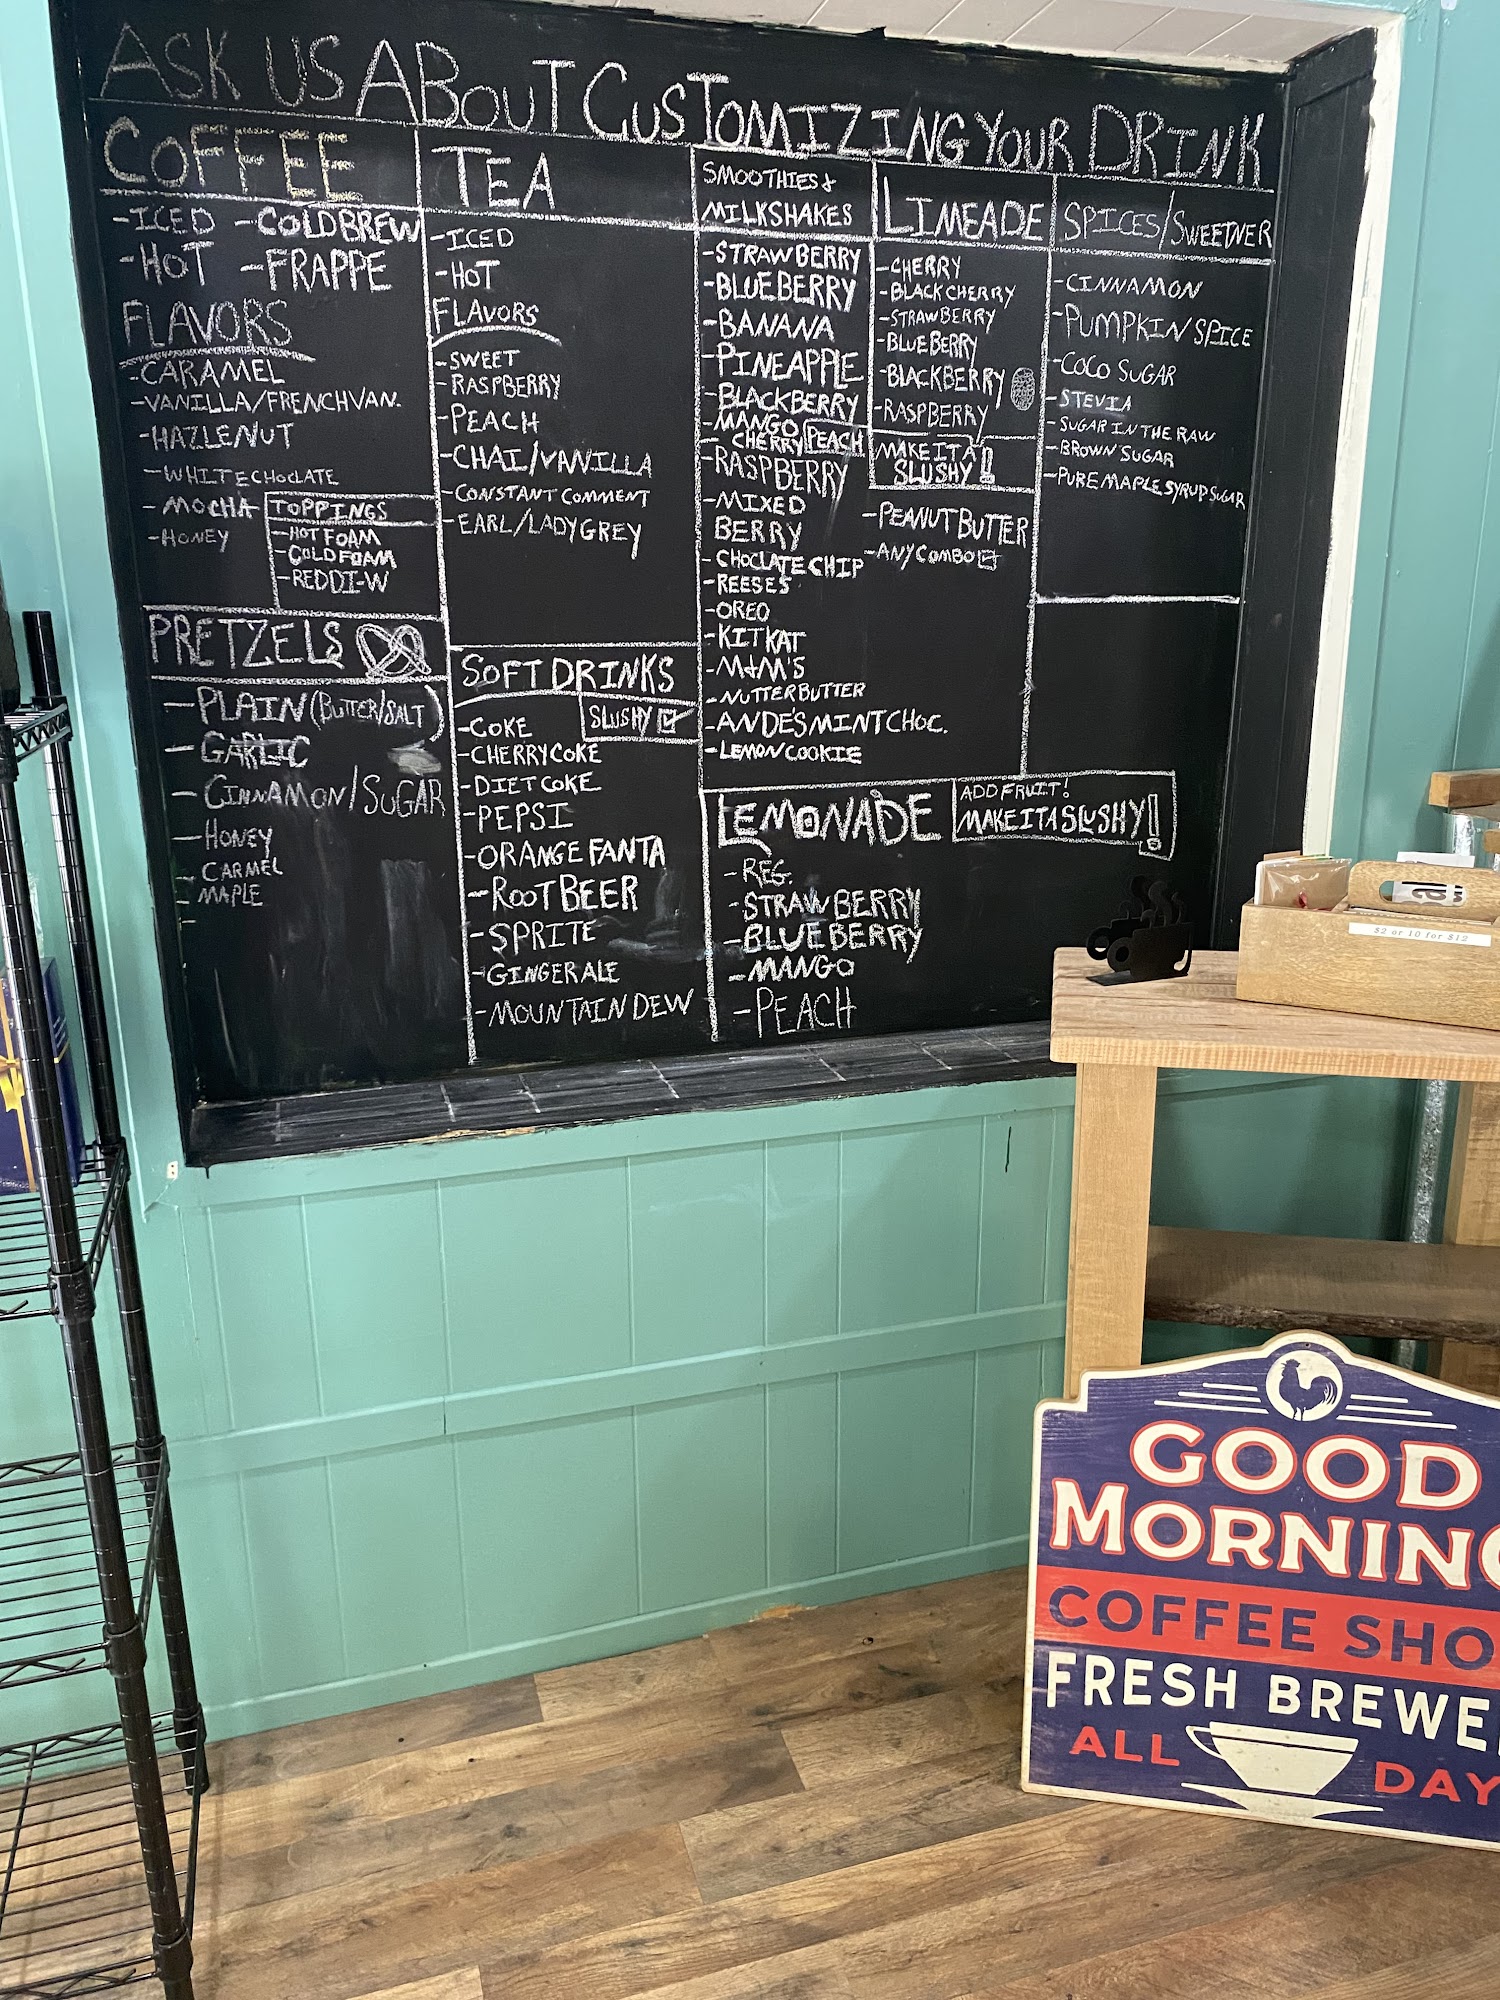 ASK US ABOUT CUSTOMIZING YOUR DRINK
COFFEE
-ICED -COLDBREW
-HOT -FRAPPE
FLAVORS
-CARAMEL
-VANILLA/FRENCH VAN.
-HAZLENUT
-WHITE CHOCLATE
-MOCHA
-HONEY
TOPPINGS
-HOT FOAM
-COLD FOAM
-REDDI-W
PRETZELS
-PLAIN (BUTTER/SALT)
-GARLIC
-CINNAMON/SUGAR
-HONEY
-CARMEL
-MAPLE
-
TEA
-ICED
-HOT
FLAVORS
-SWEET
-RASPBERRY
-PEACH
-CHAI/VANILLA
-CONSTANT COMMENT
-EARL/LADY GREY
SOFT DRINKS
SLUSHY ☑
-COKE
-CHERRY COKE
-DIET COKE
-PEPSI
-ORANGE FANTA
-ROOT BEER
-SPRITE
-GINGER ALE
-MOUNTAIN DEW
SMOOTHIES &
MILKSHAKES
-STRAWBERRY
-BLUEBERRY
-BANANA
-PINEAPPLE
-BLACKBERRY
-MANGO
-CHERRY PEACH
-RASPBERRY
-MIXED
BERRY
-CHOCLATE CHIP
-REESES
-OREO
-KIT KAT
-M&M'S
-NUTTER BUTTER
-ANDE'S MINT CHOC.
-LEMON COOKIE
-PEANUT BUTTER
-ANY COMBO ☑
LIMEADE
-CHERRY
-BLACK CHERRY
-STRAWBERRY
-BLUEBERRY
-BLACKBERRY
-RASPBERRY
MAKE IT A
SLUSHY!
SPICES/SWEETNER
-CINNAMON
-PUMPKIN SPICE
-COCO SUGAR
-STEVIA
-SUGAR IN THE RAW
-BROWN SUGAR
-PURE MAPLE SYRUP SUGAR
LEMONADE
ADD FRUIT!
MAKE IT A SLUSHY!
-REG.
-STRAWBERRY
-BLUEBERRY
-MANGO
-PEACH
$2 or 10 for $12
GOOD
MORNING
COFFEE SHO
FRESH BREWE
ALL DAY